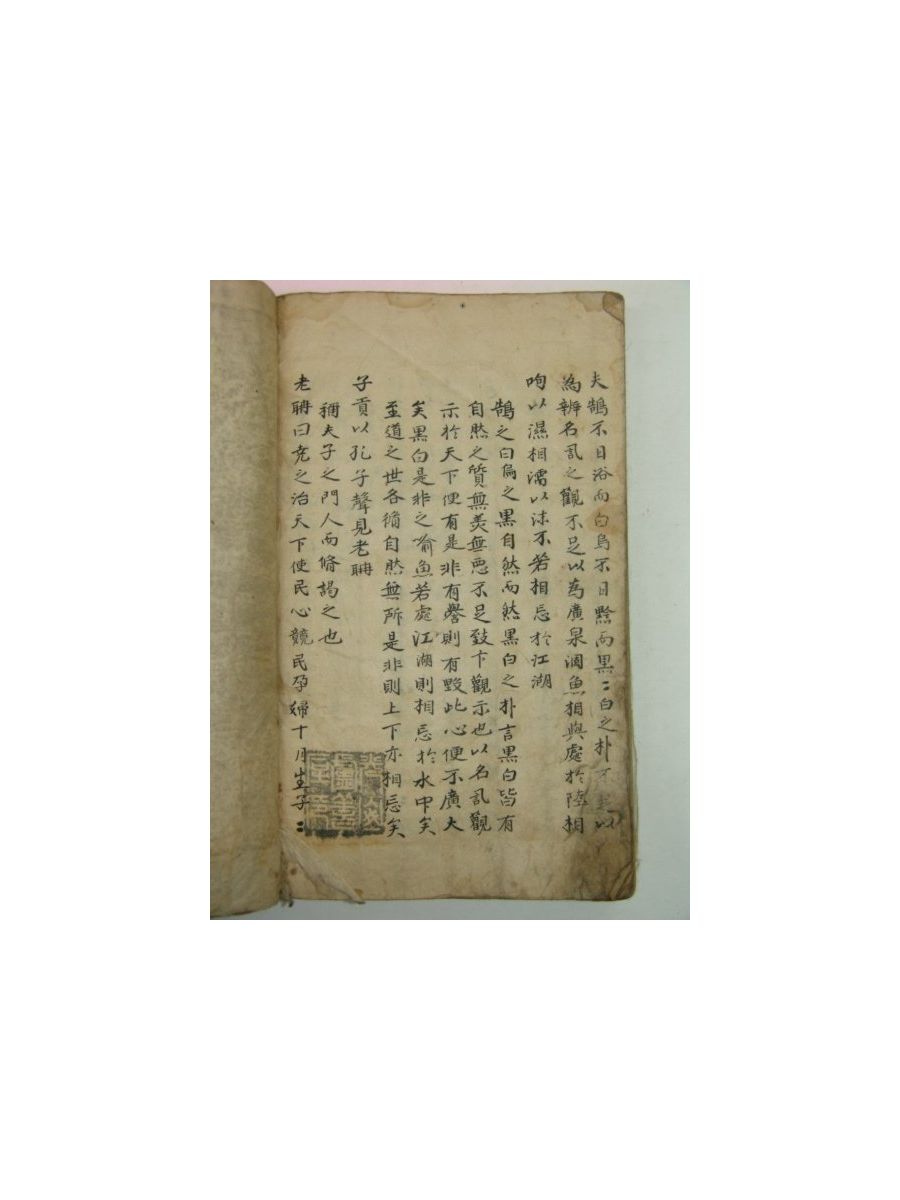 夫鵠不日浴而白烏不日黔而黒〻白之朴不足以
為辨名訊之觀不足以為廣泉涸魚相與處於陸相
呴以濕相濡以沫不若相忘於江湖
鵠之白烏之黒自然而然黒白之朴言黒白皆有
自然之質無羙無悪不足致卞觀示也以名訊觀
示於天下便有是非有譽則有毀此心便不廣大
矣黒白是非之喻魚若處江湖則相忘於水中矣
至道之世各循自然無所是非則上下亦相忘矣
子貢以孔子聲見老聃
稱夫子之門人而脩謁之也
老聃曰尭之治天下使民心競民孕婦十月生子〻